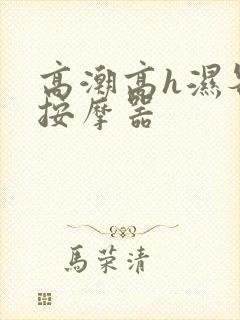 高潮高h濕
按摩器
馬荣清